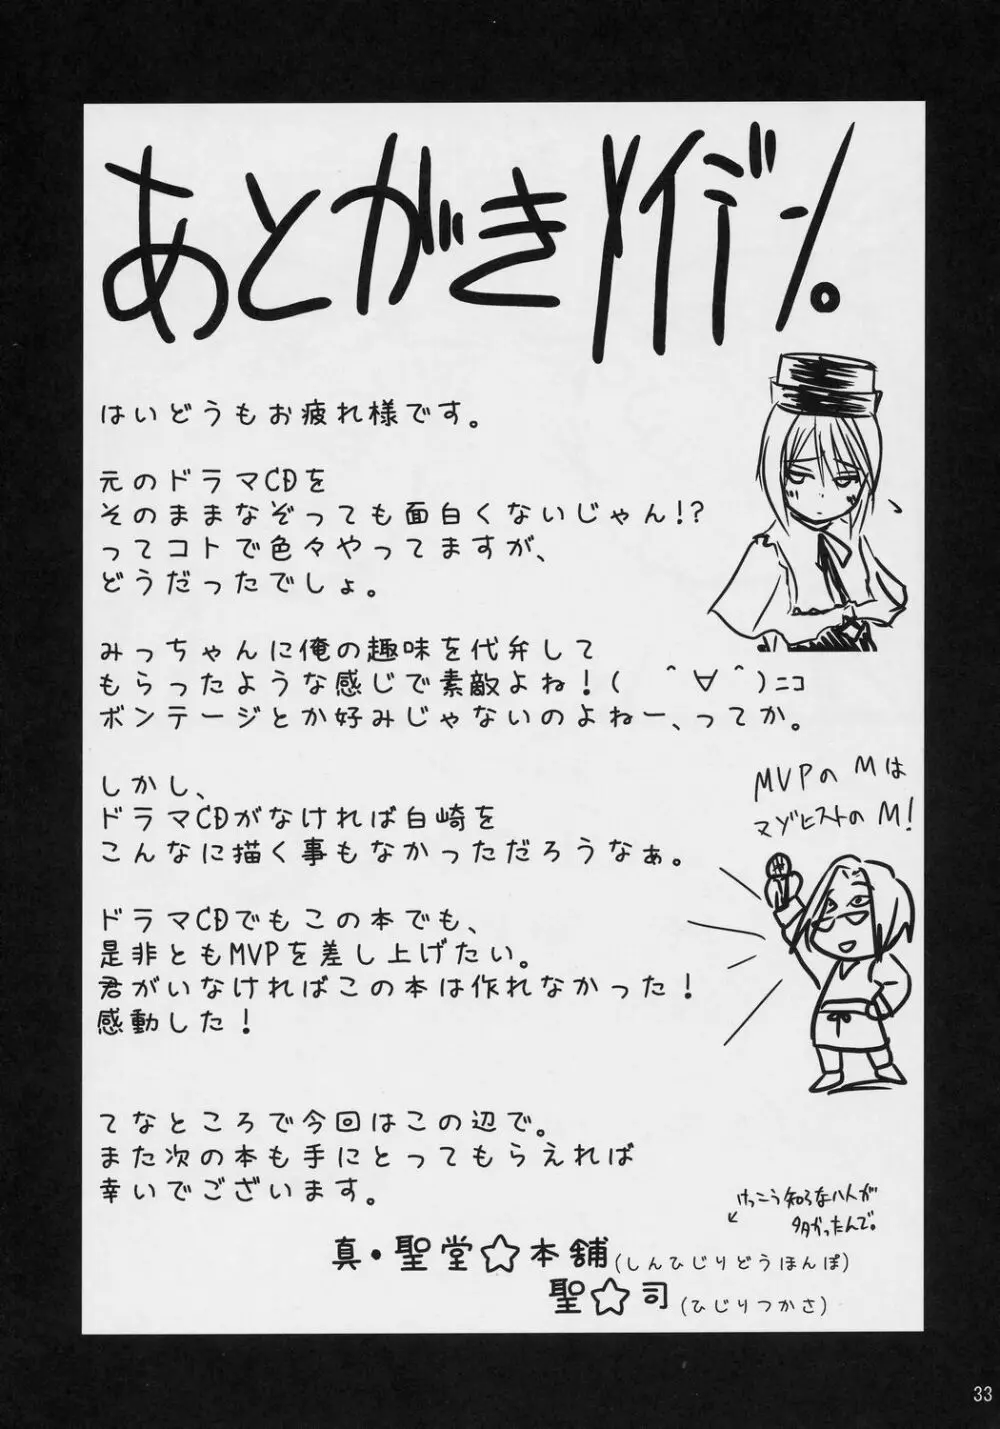 あとがきメイデン。
はいどうもお疲れ様です。
元のドラマCDを
そのままなぞっても面白くないじゃん!?
ってコトで色々やってますが、
どうだったでしょ。
みっちゃんに俺の趣味を代弁して
もらったような感じで素敵よね！( ＾∀＾)ﾆｺ
ボンテージとか好みじゃないのよねー、ってか。
MVPのMは
マゾヒストのM!
しかし、
ドラマCDがなければ白崎を
こんなに描く事もなかっただろうなぁ。
ドラマCDでもこの本でも、
是非ともMVPを差し上げたい。
君がいなければこの本は作れなかった！
感動した！
てなところで今回はこの辺で。
また次の本も手にとってもらえれば
幸いでございます。
けっこう知らない人が
多かったんで。
真・聖堂☆本舗(しんひじりどうほんぽ)
聖☆司(ひじりつかさ)
33